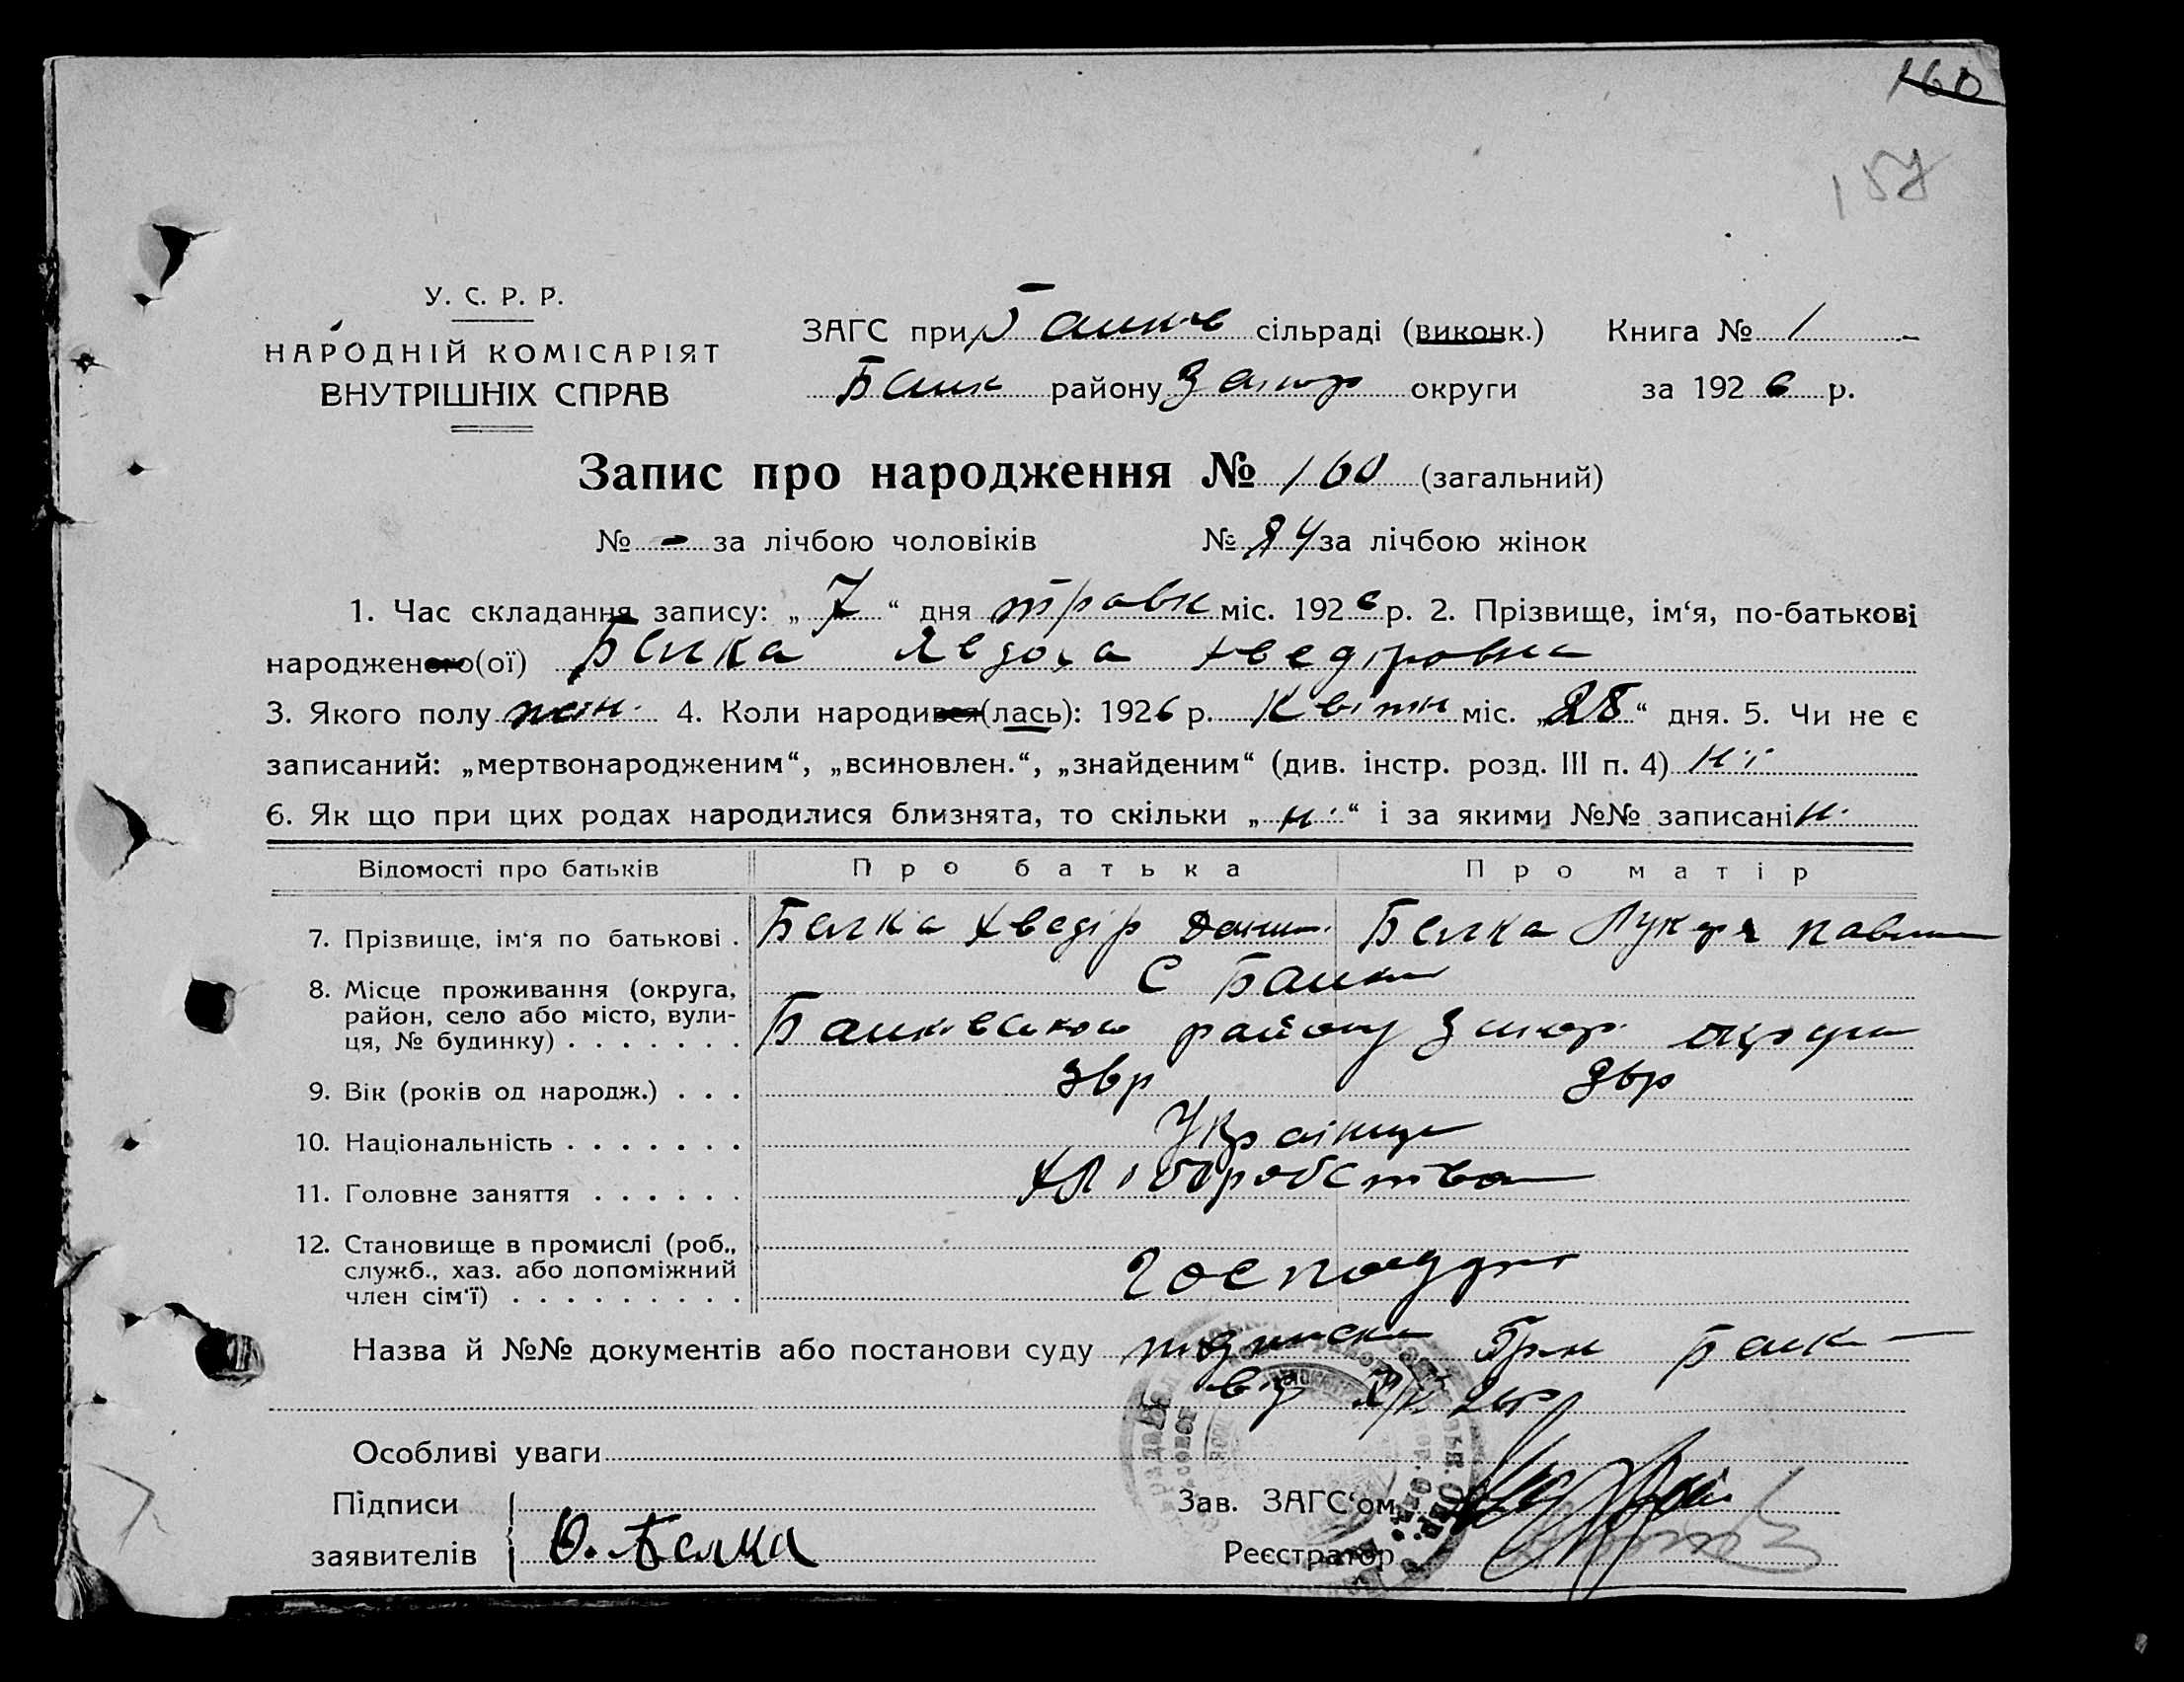 160
157
У. С. Р. Р.
НАРОДНІЙ КОМІСАРІЯТ
ВНУТРІШНІХ СПРАВ
ЗАГС при сільраді (виконк.) Книга № 1
району округи за 1926 р.
Запис про народження № 160 (загальний)
№ - за лічбою чоловіків № 84 за лічбою жінок
1. Час складання запису: „ 7 “ дня травн міс. 1926 р. 2. Прізвище, ім‘я, по-батькові
народженого(ої) Белка Явдоха Хведіровна
3. Якого полу жін. 4. Коли народився(лась): 1926 р. Квітн міс. „28“ дня. 5. Чи не є
записаний: „мертвонародженим“, „всиновлен.“, „знайденим“ (див. інстр. розд. III п. 4) ні
6. Як що при цих родах народилися близнята, то скільки „ н. “ і за якими №№ записані н.
Відомості про батьків Про батька Про матір
7. Прізвище, ім‘я по батькові . Белка Хведір Белка Лукеря Павл
8. Місце проживання (округа,
район, село або місто, вули-
ця, № будинку) . . . . . . . району округи
9. Вік (років од народж.) . . .
10. Національність . . . . . . . Українці
11. Головне заняття . . . . . . Хліборобство
12. Становище в промислі (роб.,
служб., хаз. або допоміжний
член сім‘ї) . . . . . . . . . господарі
Назва й №№ документів або постанови суду
від
Особливі уваги
Підписи Зав. ЗАГС‘ом
заявителів Ѳ. Белка Реєстратор